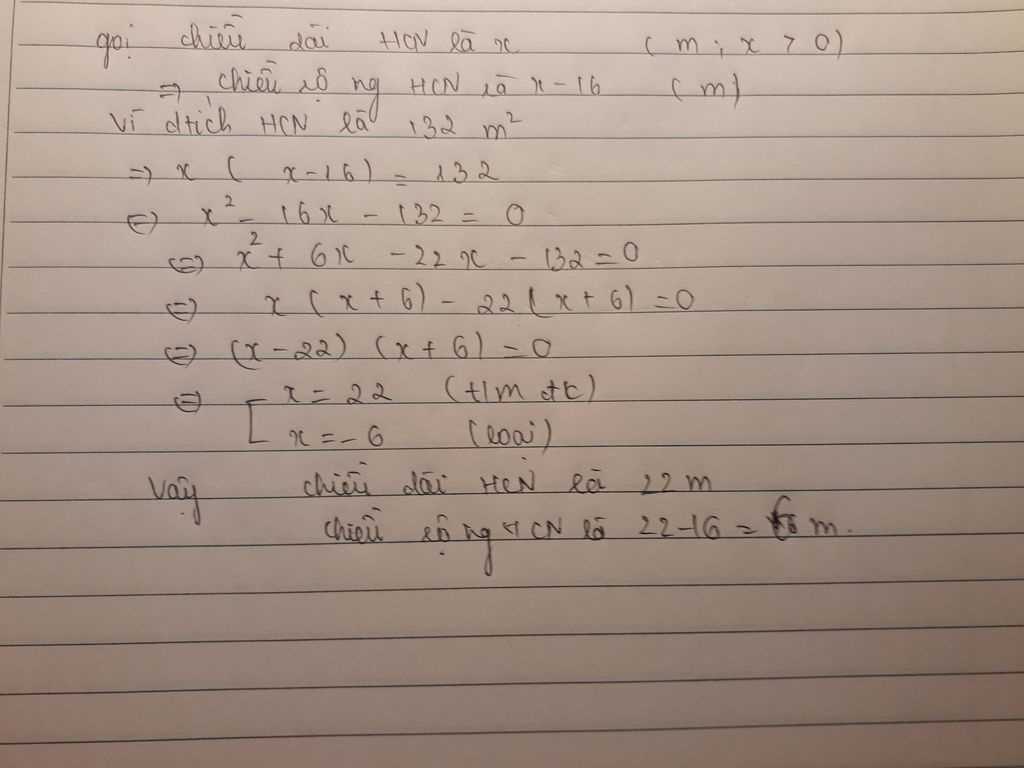 gọi chiều dài HCN là x ( m ; x > 0)
=> chiều rộng HCN là x - 16 (m)
Vì dtích HCN là 132 m²
=> x ( x - 16) = 132
<=> x² - 16x - 132 = 0
<=> x² + 6x - 22x - 132 = 0
<=> x ( x + 6) - 22 ( x + 6) = 0
<=> (x - 22) (x + 6) = 0
<=> [ x = 22 (t/m đk)
x = - 6 (loại)
Vậy chiều dài HCN là 22 m
chiều rộng HCN là 22 - 16 = 6 m.